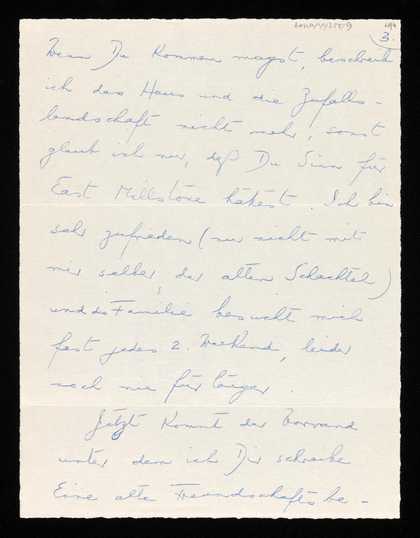 3
Wenn Du kommen magst, beschreib
ich das Haus und die Zufalls-
landschaft nicht mehr, sonst
glaub ich nur, daß Du Sinn für
East Millstone hättest. Ich bin
sehr zufrieden (nur nicht mit
mir selber, der alten Schachtel)
und die Familie besucht mich
fast jedes 2. Weekend, leider
noch nie für länger.
Jetzt kommt der Vorwand
unter dem ich Dir schreibe
Eine alte Freundschaftsbe-